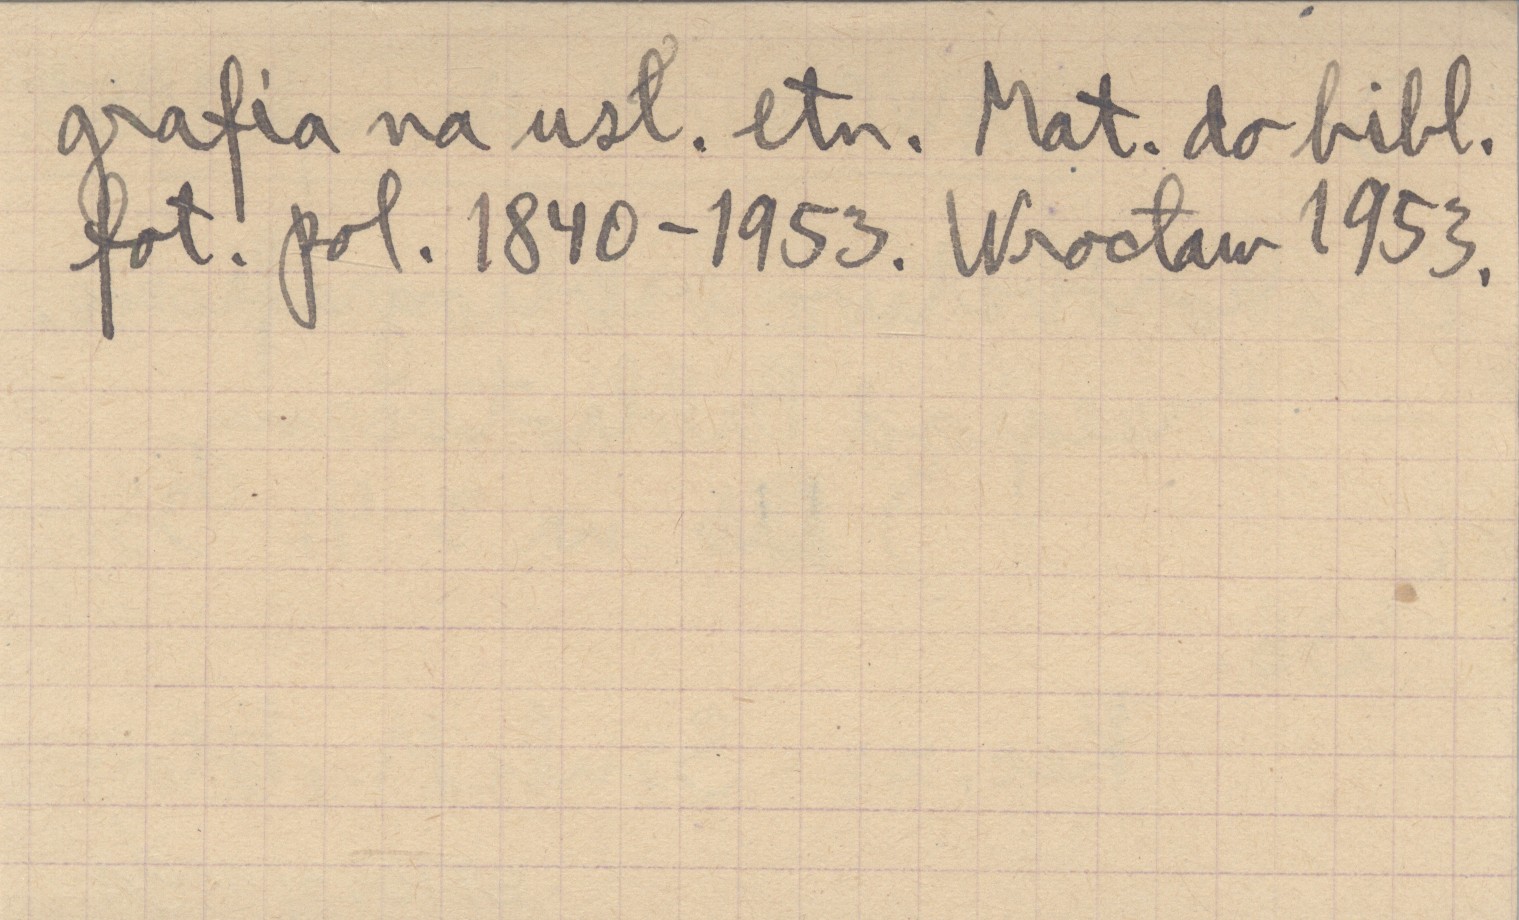 grafia na usł. etn. Mat. do bibl.
fot. pol. 1840-1953. Wrocław 1953.